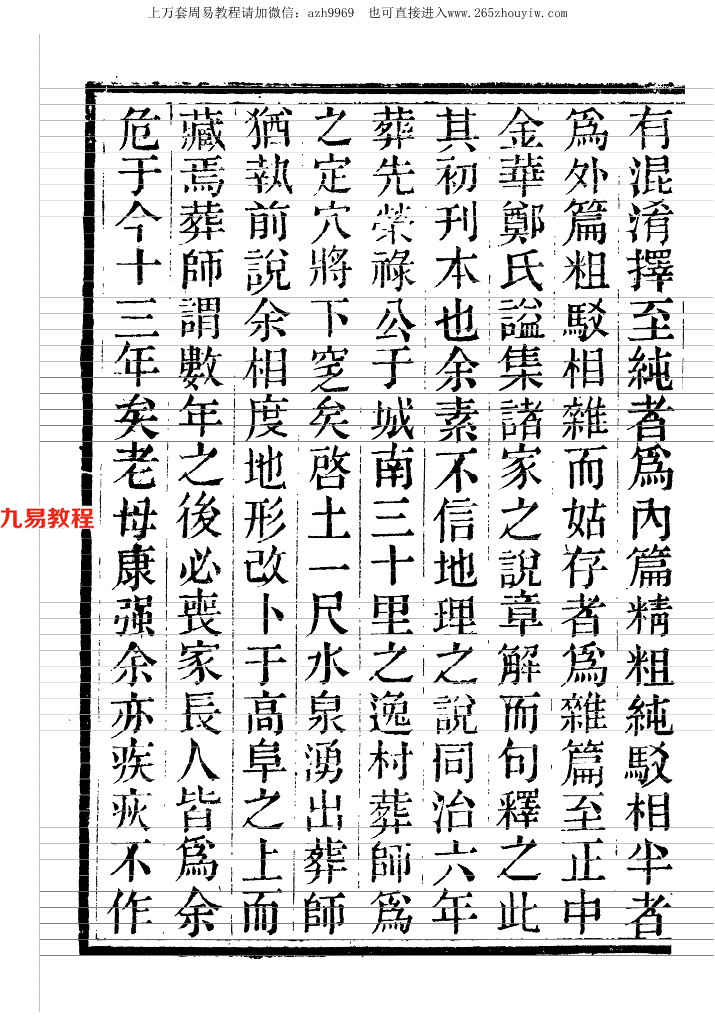 上万套周易教程请加微信：azh9969　也可直接进入www.265zhouyiw.com
有混淆擇至純者爲內篇精粗純駁相半者
爲外篇粗駁相雜而姑存者爲雜篇至正中
金華鄭氏謐集諸家之說章解而句釋之此
其初刊本也余素不信地理之說同治六年
葬先榮祿公于城南三十里之逸村葬師爲
之定穴將下窆矣啓土一尺水泉湧出葬師
猶執前說余相度地形改卜于高阜之上而
藏焉葬師謂數年之後必喪家長人皆爲余
危于今十三年矣老母康强余亦疾疢不作
九易教程